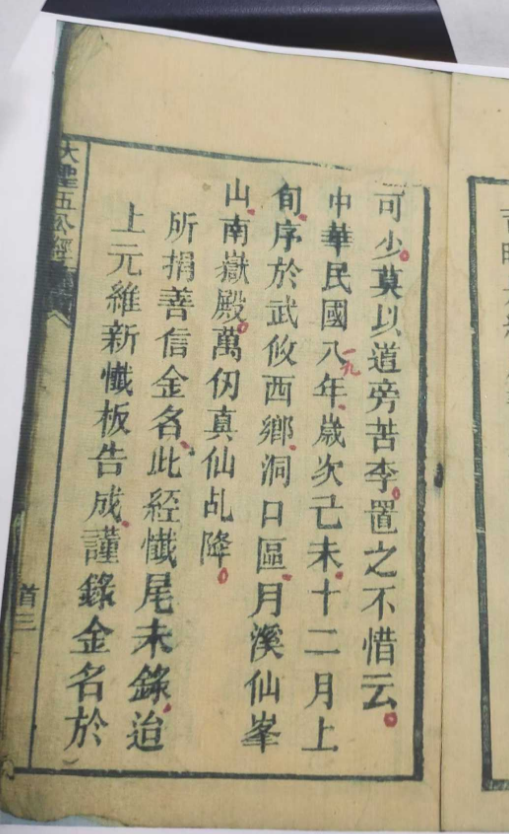 可少莫以道旁苦李置之不惜云
中華民國八年歲次己未十二月上
一九
旬序於武攸西鄉洞口區月溪仙峯
山南嶽殿萬仞真仙乩降
所捐善信金名此經懺尾未錄迨
上元維新懺板告成謹錄金名於
大聖五公經
首三